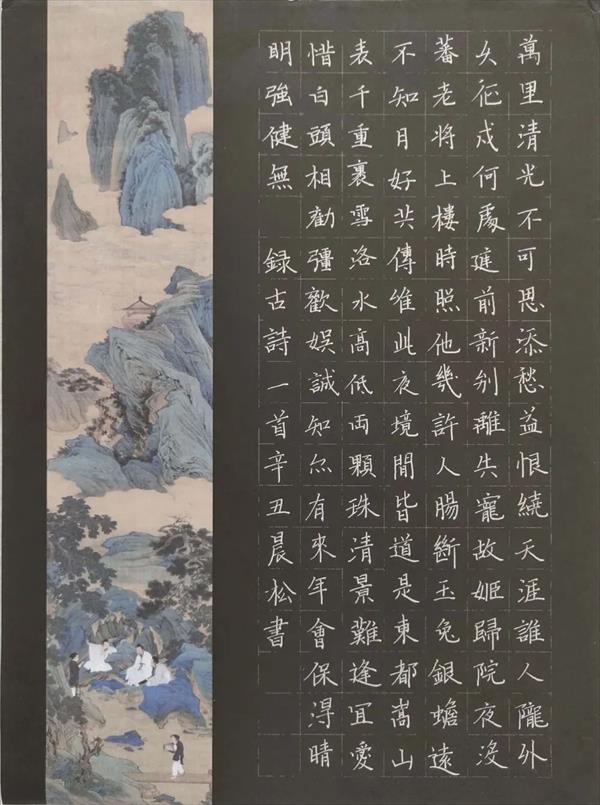 萬里清光不可思添愁益恨繞天涯誰人隴外
久征戍何處庭前新別離失寵故姬歸院夜沒
蕃老將上樓時照他幾許人腸斷玉兔銀蟾遠
不知月好共傳惟此夜境閒皆道是東都嵩山
表千重裏雪洛水高低兩顆珠清景難逢宜愛
惜白頭相勸彊歡娛誠知亦有來年會保得晴
明強健無 録古詩一首辛丑晨松書